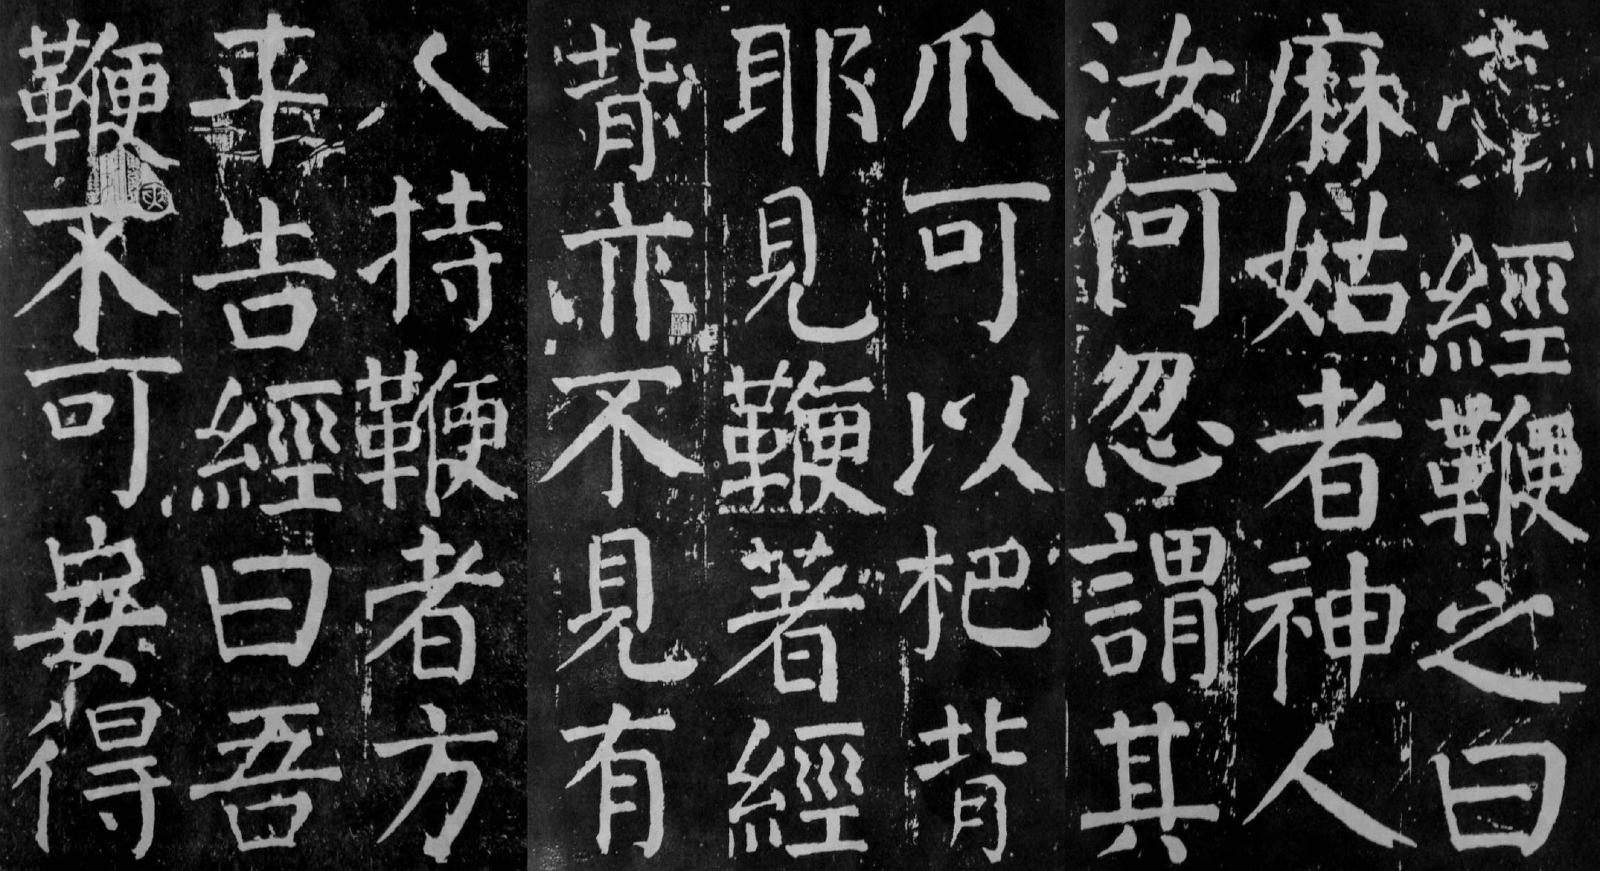 牽經鞭之曰
麻姑者神人
汝何忽謂其
爪可以杷背
耶見鞭著經
背亦不見有
人持鞭者方
平告經曰吾
鞭不可妄得